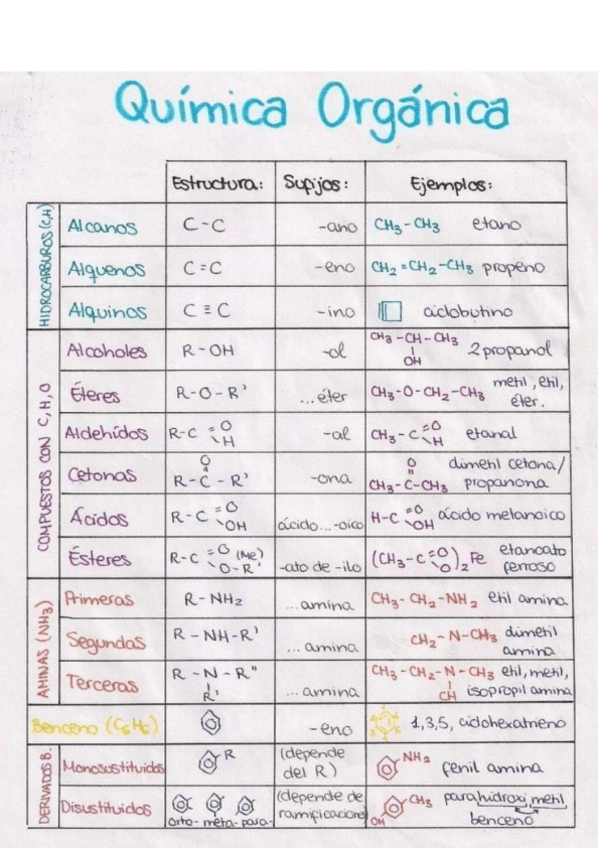 Química Orgánica
Estructura: Sufijos: Ejemplos:
HIDROCARBUROS (C,H)
Alcanos C-C -ano CH3-CH3 etano
Alquenos C=C -eno CH2=CH2-CH3 propeno
Alquinos C≡C -ino ciclobutino
COMPUESTOS CON C, H, O
Alcoholes R-OH -ol CH3-CH-CH3 2 propanol
OH
Éteres R-O-R' ...éter CH3-O-CH2-CH3 metil, etil,
éter.
Aldehídos R-C =O \H -al CH3-C =O \H etanal
Cetonas R-C-R' -ona CH3-C-CH3 dimetil cetona/
O O propanona
Ácidos R-C =O \OH ácido...-oico H-C =O \OH ácido metanoico
Ésteres R-C =O (Me) \O-R' -ato de -ilo (CH3-C =O \O)2 Fe etanoato
ferroso
AMINAS (NH3)
Primeras R-NH2 ...amina CH3-CH2-NH2 etil amina
Segundas R-NH-R' ...amina CH2-N-CH3 dimetil
amina
Terceras R-N-R" ...amina CH3-CH2-N-CH3 etil, metil,
R' CH isopropil amina
Benceno (C6H6) -eno 1,3,5, ciclohexatrieno
DERIVADOS B.
Monosustituidos R (depende
del R) NH2 fenil amina
Disustituidos (depende de
orto- meta- para- ramificaciones) CH3 OH para hidroxi, metil,
benceno